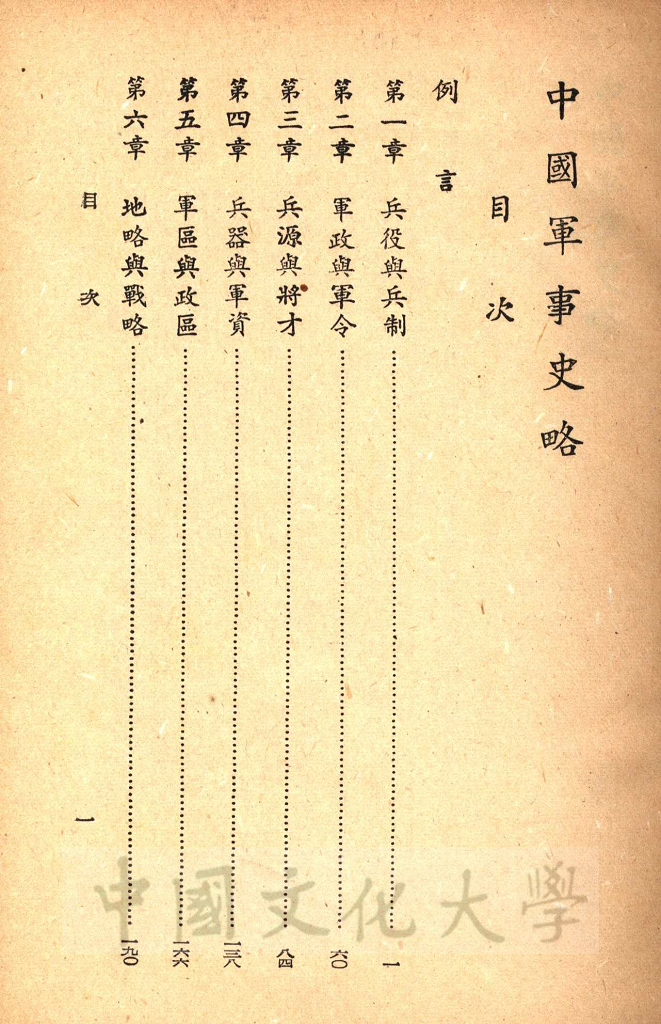 中國軍事史略
目次
例言
第一章 兵役與兵制 一
第二章 軍政與軍令 六〇
第三章 兵源與將才 八四
第四章 兵器與軍資 一三八
第五章 軍區與政區 一六六
第六章 地略與戰略 一九〇
目次 一
中國文化大學